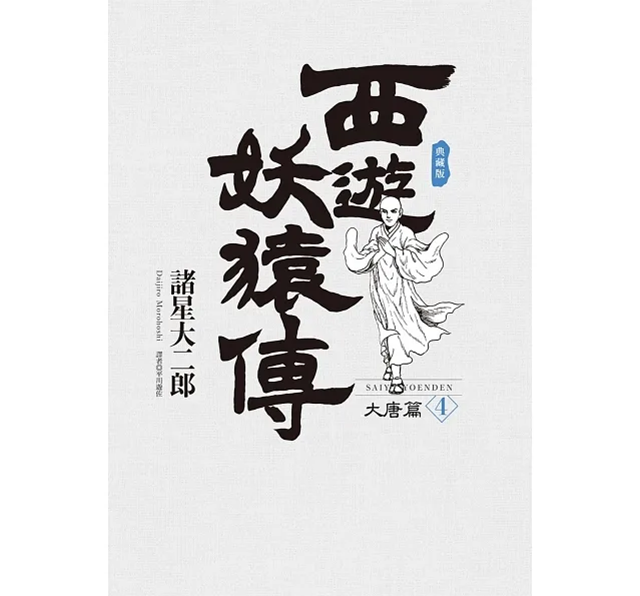 西遊
妖猿傳
典藏版
SAIYUYOENDEN
大唐篇 4
諸星大二郎
Daijiro Morohoshi
譯者◎平川遊佐